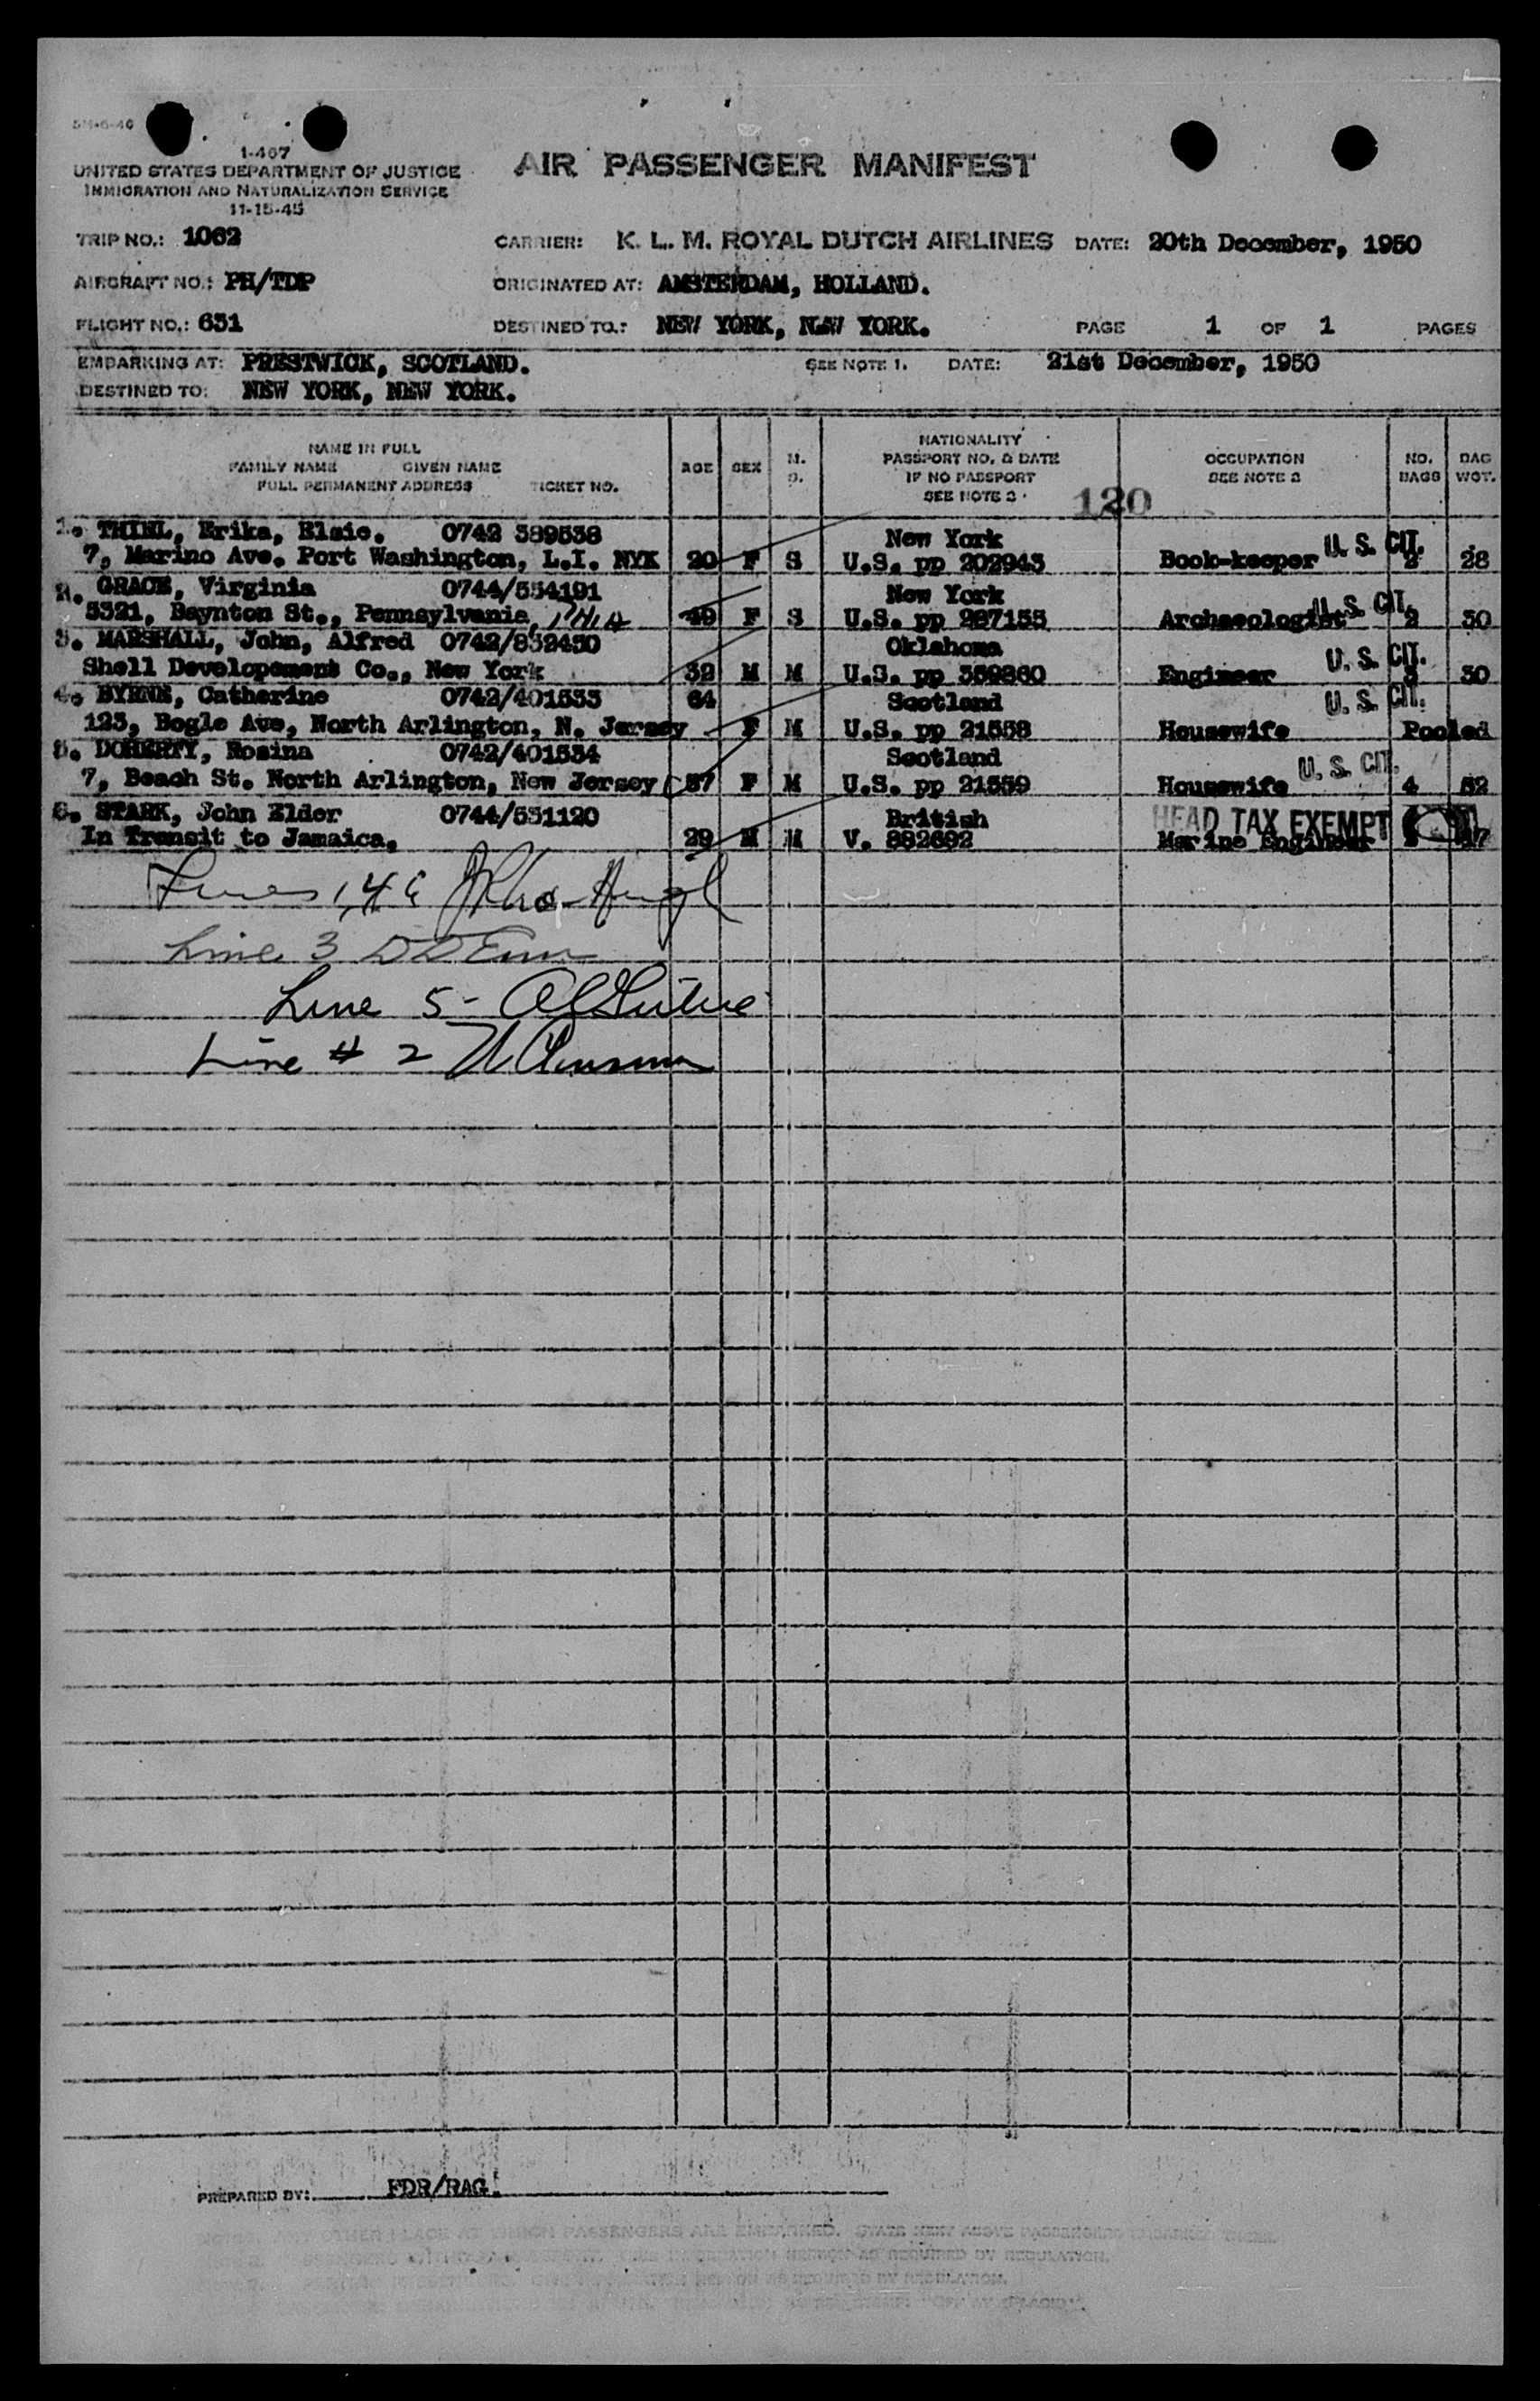 1-467
UNITED STATES DEPARTMENT OF JUSTICE
IMMIGRATION AND NATURALIZATION SERVICE
11-15-45
AIR PASSENGER MANIFEST
TRIP NO.: 1062
CARRIER: K. L. M. ROYAL DUTCH AIRLINES DATE: 20th December, 1950
AIRCRAFT NO.: PH/TDP
ORIGINATED AT: AMSTERDAM, HOLLAND.
FLIGHT NO.: 631
DESTINED TO.: NEW YORK, NEW YORK. PAGE 1 OF 1 PAGES
EMBARKING AT: PRESTWICK, SCOTLAND. SEE NOTE 1. DATE: 21st December, 1950
DESTINED TO: NEW YORK, NEW YORK.
NAME IN FULL
FAMILY NAME GIVEN NAME
FULL PERMANENT ADDRESS TICKET NO.
AGE SEX M. S.
NATIONALITY
PASSPORT NO. & DATE
IF NO PASSPORT
SEE NOTE 3
OCCUPATION
SEE NOTE 2
NO. BAGS
BAG WGT.
120
1. THIEL, Erika, Elsie. 0742 389538 New York
7, Marino Ave. Port Washington, L.I. NYK 20 F S U.S. pp 202943 Book-keeper U. S. CIT. 28
2. GRACE, Virginia 0744/554191 New York
5321, Baynton St., Pennsylvania, PHILA 49 F S U.S. pp 227155 Archaeologist U. S. CIT. 2 30
3. MARSHALL, John, Alfred 0742/832430 Oklahoma
Shell Developement Co., New York 32 M M U.S. pp 359260 Engineer U. S. CIT. 3 30
4. BYRNE, Catherine 0742/401533 64 Scotland U. S. CIT.
123, Bogle Ave, North Arlington, N. Jersey F M U.S. pp 21558 Housewife Pooled
5. DOHERTY, Rosina 0742/401534 Scotland
7, Beach St. North Arlington, New Jersey 37 F M U.S. pp 21559 Housewife U. S. CIT. 4 52
6. STARK, John Elder 0744/551120 British HEAD TAX EXEMPT
In Transit to Jamaica. 29 M M V. 882692 Marine Engineer
Lines 1, 4 6
Line 3
Line 5 -
Line # 2
PREPARED BY: FDR/RAG.